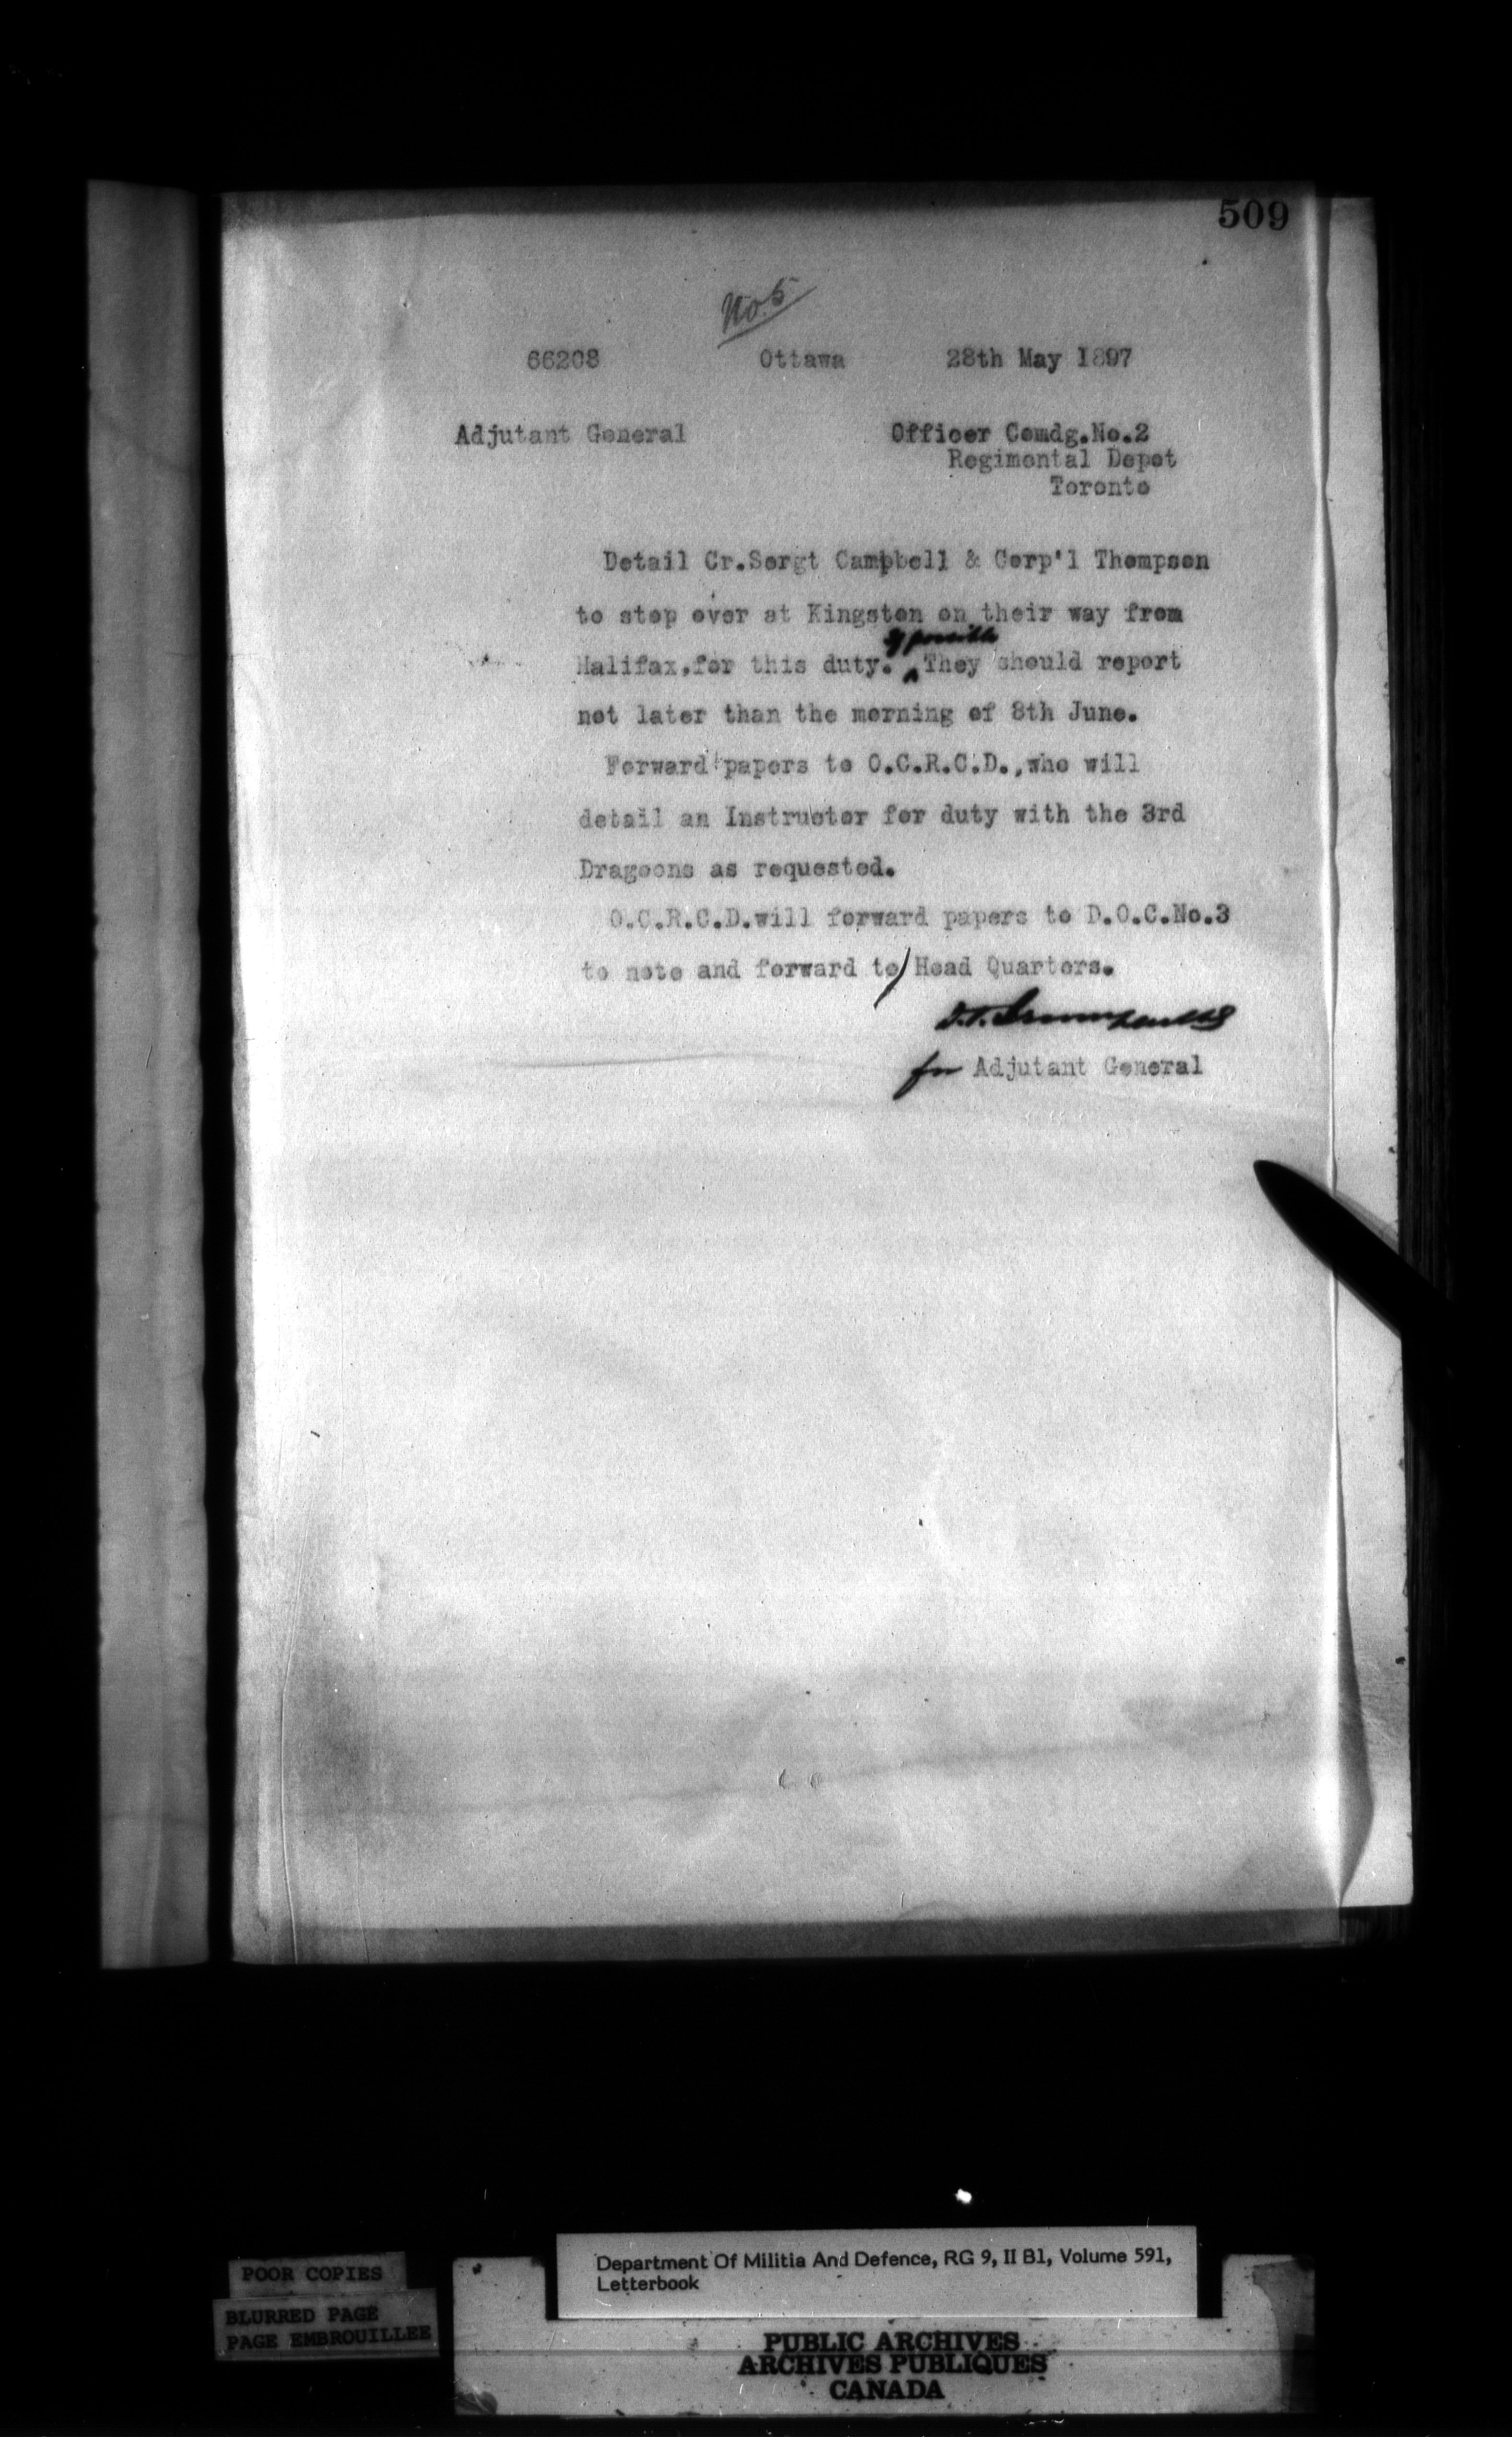 509
No. 5
66208 Ottawa 28th May 1897
Adjutant General Officer Comdg.No.2
Regimental Depot
Toronto
Detail Cr.Sergt Campbell & Corp'l Thompson
to stop over at Kingston on their way from
if possible
Halifax,for this duty. They should report
not later than the morning of 8th June.
Forward papers to O.C.R.C.D.,who will
detail an Instructor for duty with the 3rd
Dragoons as requested.
O.C.R.C.D.will forward papers to D.O.C.No.3
to note and forward to Head Quarters.
for Adjutant General
Department Of Militia And Defence, RG 9, II B1, Volume 591,
Letterbook
POOR COPIES
BLURRED PAGE
PAGE EMBROUILLEE
PUBLIC ARCHIVES
ARCHIVES PUBLIQUES
CANADA